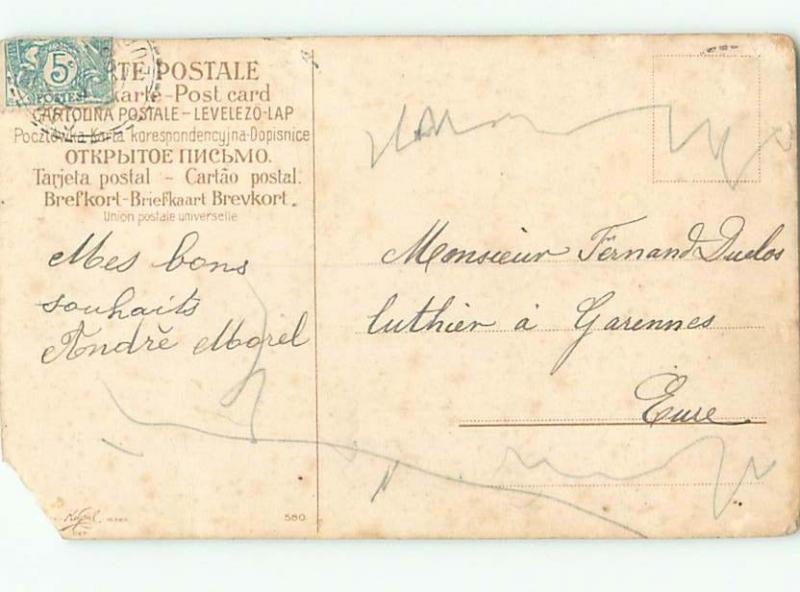 5c
POSTES
RTE POSTALE
karte-Post card
CARTOLINA POSTALE-LEVELEZÖ-LAP
Pocztówka Karta korespondencyjna-Dopisnice
ОТКРЫТОЕ ПИСЬМО.
Tarjeta postal - Cartão postal.
Brefkort-Briefkaart Brevkort.
Union postale universelle
Mes bons
souhaits
André Morel
Monsieur Fernand Duclos
luthier à Garennes
Eure
580